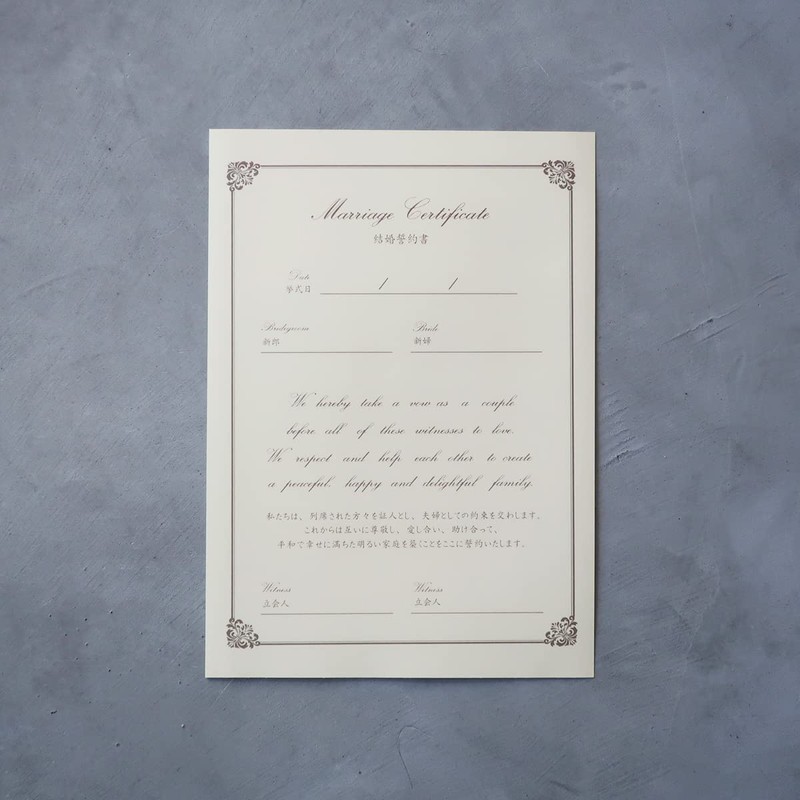 Marriage Certificate
結婚誓約書
Date
挙式日 / /
Bridegroom Bride
新郎 新婦
We hereby take a vow as a couple
before all of these witnesses to love.
We respect and help each other to create
a peaceful, happy and delightful family.
私たちは、列席された方々を証人とし、夫婦としての約束を交わします。
これからは互いに尊敬し、愛し合い、助け合って、
平和で幸せに満ちた明るい家庭を築くことをここに誓約いたします。
Witness Witness
立会人 立会人